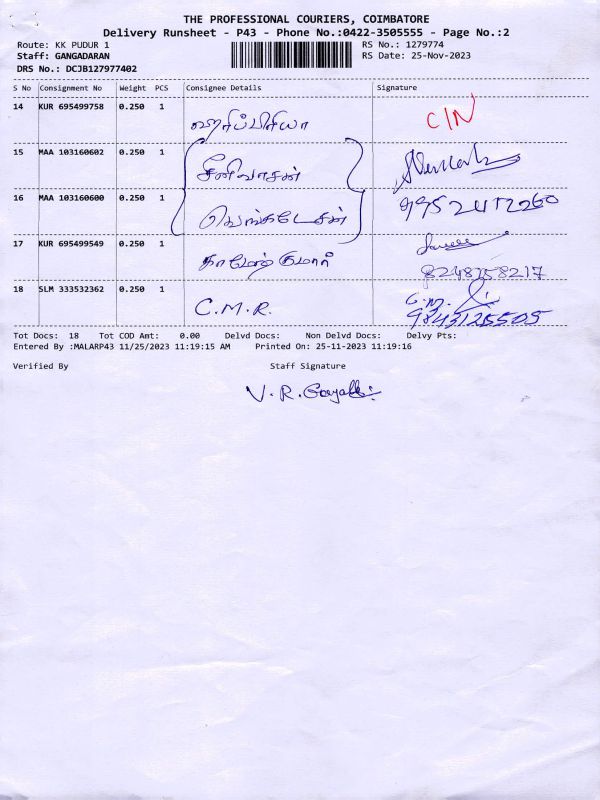 THE PROFESSIONAL COURIERS, COIMBATORE
Delivery Runsheet - P43 - Phone No.:0422-3505555 - Page No.:2
Route: KK PUDUR 1 RS No.: 1279774
Staff: GANGADARAN RS Date: 25-Nov-2023
DRS No.: DCJB127977402
S No Consignment No Weight PCS Consignee Details Signature
14 KUR 695499758 0.250 1 ஹரிப்பிரியா C/N
15 MAA 103160602 0.250 1 சீனிவாசன்
16 MAA 103160600 0.250 1 வெங்கடேசன்
17 KUR 695499549 0.250 1 8248758217
18 SLM 333532362 0.250 1 C.M.R. 9843125505
Tot Docs: 18 Tot COD Amt: 0.00 Delvd Docs: Non Delvd Docs: Delvy Pts:
Entered By :MALARP43 11/25/2023 11:19:15 AM Printed On: 25-11-2023 11:19:16
Verified By Staff Signature
V. R. Gayathri